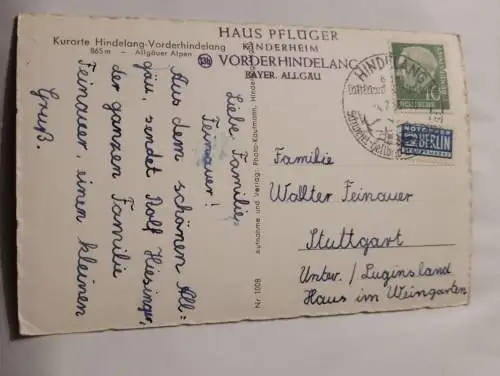 Kurorte Hindelang-Vorderhindelang
865 m - Allgäuer Alpen
HAUS PFLÜGER
KINDERHEIM
VORDERHINDELANG
BAYER. ALLGÄU
Liebe Familie
Feinauer!
Aus dem schönen All=
gäu, sendet Rolf Hiesinger,
der ganzen Familie
Feinauer, einen kleinen
Gruß.
Nr. 1008
Aufnahme und Verlag: Photo-Kaufmann, Hindelang
HINDELANG
NOTOPFER
2 BERLIN
STEUERMARKE
Familie
Walter Feinauer
Stuttgart
Unter./Luginsland
Haus im Weingarten